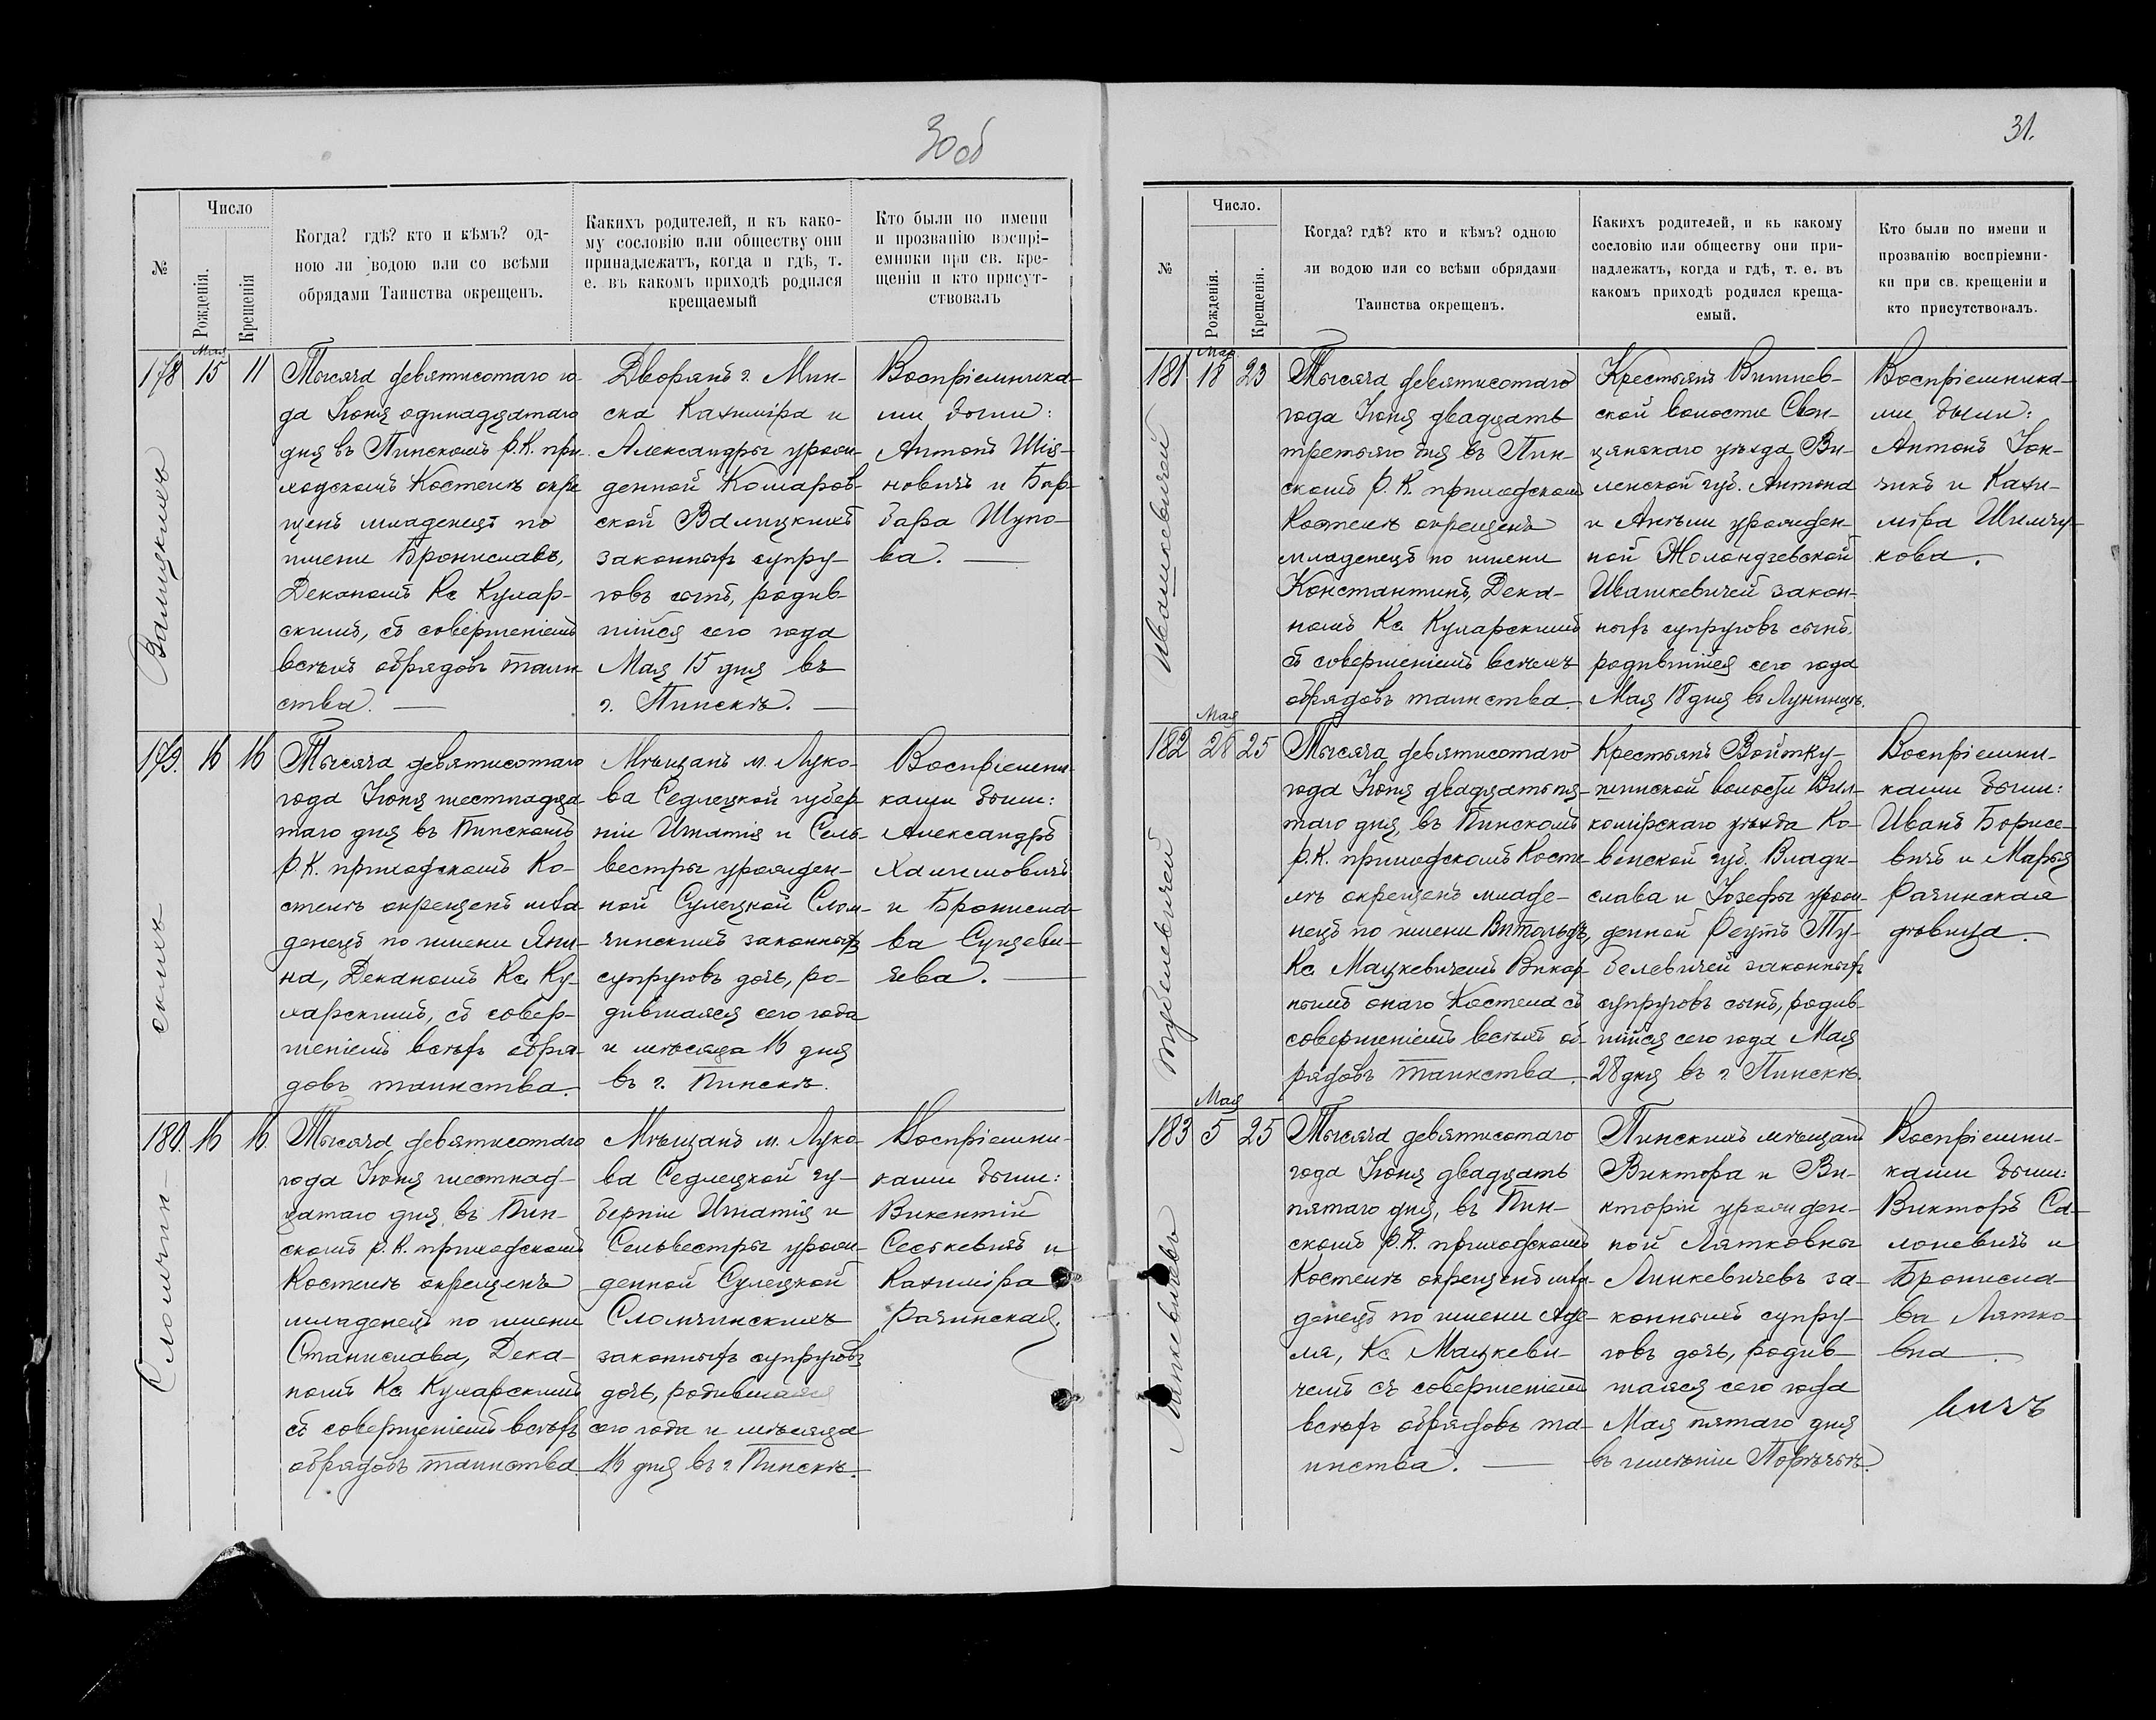 30 об
№
Число
Рожденія.
Крещенія
Когда? гдѣ? кто и кѣмъ? од-
ною ли водою или со всѣми
обрядами Таинства окрещенъ.
Какихъ родителей, и къ како-
му сословію или обществу они
принадлежатъ, когда и гдѣ, т.
е. въ какомъ приходѣ родился
крещаемый
Кто были по имени
и прозванію воспрі-
емники при св. кре-
щеніи и кто присут-
ствовалъ
178
Мая
15
11
Валицкихъ
Тысяча девятисотаго го-
да Іюня одинадцатаго
дня въ Пинскомъ Р.К. при-
ходскомъ Костелѣ окре
щенъ младенецъ по
имени Брониславъ,
Деканомъ Кс Куларскимъ
скимъ, съ совершеніемъ
всѣхъ обрядовъ таин-
ства. —
Дворянъ г. Мин-
ска Казиміра и
Александры урож-
денной Комаров-
ской Валицкихъ
законныхъ супру-
говъ сынъ, родив-
шійся сего года
Мая 15 дня въ
г. Пинскѣ. —
Воспріемника-
ми были:
Антонъ
новичъ и Бар-
бара Шупо-
ва. —
179.
16
16
скихъ
Тысяча девятисотаго
года Іюня шестнадца
таго дня въ Пинскомъ
Р.К. приходскомъ Ко-
стелѣ окрещенъ мла-
денецъ по имени Яни-
на, Деканомъ Кс. Ку-
ларскимъ, съ совер-
шеніемъ всѣхъ обря-
довъ таинства.
Мѣщанъ м. Луко-
ва Седлецкой губер
ніи Игнатія и Сель-
вестры урожден-
ной Сулецкой Слом-
чинскихъ законныхъ
супруговъ дочь, ро-
дившаяся сего года
и мѣсяца 16 дня
въ г. Пинскѣ.
Воспріемни-
ками были:
Александръ
Халимовичъ
и Брониcла-
ва Сунцеви-
чева. —
180.
16
16
Сломчин-
Тысяча девятисотаго
года Іюня шестнад-
цатаго дня въ Пин-
скомъ Р.К. приходскомъ
Костелѣ окрещенъ
младенецъ по имени
Станислава, Дека-
номъ Кс Куларскимъ
съ совершеніемъ всѣхъ
обрядовъ таинства
Мѣщанъ м. Луко-
ва Седлецкой гу-
берніи Игнатія и
Сельвестры урож-
денной Сулецкой
Сломчинскихъ
законныхъ супруговъ
дочь, родившаяся
сего года и мѣсяца
16 дня въ г. Пинскѣ.
Воспріемни-
ками были:
Викентій
Сеськевичъ и
Казиміра
Рачинская.
31.
№
Число.
Рожденія.
Крещенія.
Когда? гдѣ? кто и кѣмъ? одною
ли водою или со всѣми обрядами
Таинства окрещенъ.
Какихъ родителей, и къ какому
сословію или обществу они при-
надлежатъ, когда и гдѣ, т. е. въ
какомъ приходѣ родился креща-
емый.
Кто были по имени и
прозванію воспріемни-
ки при св. крещеніи и
кто присутствовалъ.
181
Мая
18
23
Ивашкевичей
Тысяча девятисотаго
года Іюня двадцать
третьяго дня въ Пин-
скомъ Р.К. приходскомъ
Костелѣ окрещенъ
младенецъ по имени
Константинъ, Дека-
номъ Кс. Куларскимъ
съ совершеніемъ всѣхъ
обрядовъ таинства.
Крестьянъ Вишнев-
ской волости Свен-
цянскаго уѣзда Ви-
ленской губ. Антона
и Анѣли урожден-
ной Жоландзевской
Ивашкевичей закон-
ныхъ супруговъ сынъ,
родившійся сего года
Мая 18 дня въ Лунинцѣ.
Воспріемника-
ми были:
Антонъ Іон-
чикъ и Кази-
міра Шимчу-
кова.
182
Мая
28
25
Тубелевичей
Тысяча девятисотаго
года Іюня двадцать пя-
таго дня, въ Пинскомъ
Р.К. приходскомъ Косте-
лѣ окрещенъ младе-
нецъ по имени Витольдъ,
Кс. Мацкевичемъ Викар-
нымъ онаго Костела съ
совершеніемъ всѣхъ об-
рядовъ таинства.
Крестьянъ Войтку-
шкинской волости Вил-
комірскаго уѣзда Ко-
венской губ. Влади-
слава и Іозефы урож-
денной Реутъ Ту-
белевичей законныхъ
супруговъ сынъ, родив-
шійся сего года Мая
28 дня въ г. Пинскѣ.
Воспріемни-
ками были:
Иванъ Борисе-
вичъ и Марья
Рачинская
дѣвица.
183
Мая
5
25
Линкевичевъ
Тысяча девятисотаго
года Іюня двадцать
пятаго дня, въ Пин-
скомъ Р.К. приходскомъ
Костелѣ окрещенъ мла-
денецъ по имени Аде-
ля, Кс Мацкеви-
чемъ съ совершеніемъ
всѣхъ обрядовъ та-
инства. —
Пинскихъ мѣщанъ
Виктора и Ви-
кторіи урожден-
ной Лятковны
Линкевичевъ за-
конныхъ супру-
говъ дочь, родив-
шаяся сего года
Мая пятаго дня
въ имѣніи Порѣчьѣ.
Воспріемни-
ками были:
Викторъ Са-
лоневичъ и
Брониcла-
ва Лятко-
вна